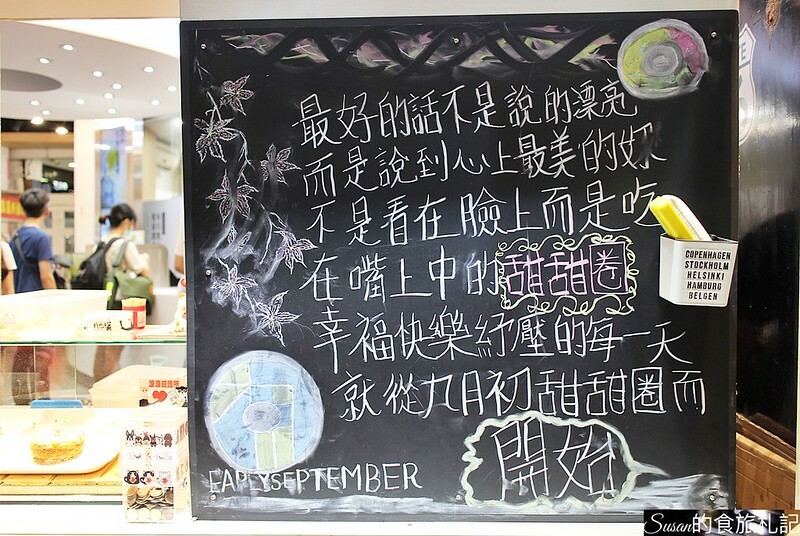 最好的話不是說的漂亮
而是說到心上最美的妳
不是看在臉上而是吃
在嘴上中的甜甜圈
幸福快樂紓壓的每一天
就從九月初甜甜圈而
開始
EAPLYSEPTEMBER
COPENHAGEN
STOCKHOLM
HELSINKI
HAMBURG
BELGEN
浪浪庇護所
Susan的食旅札記